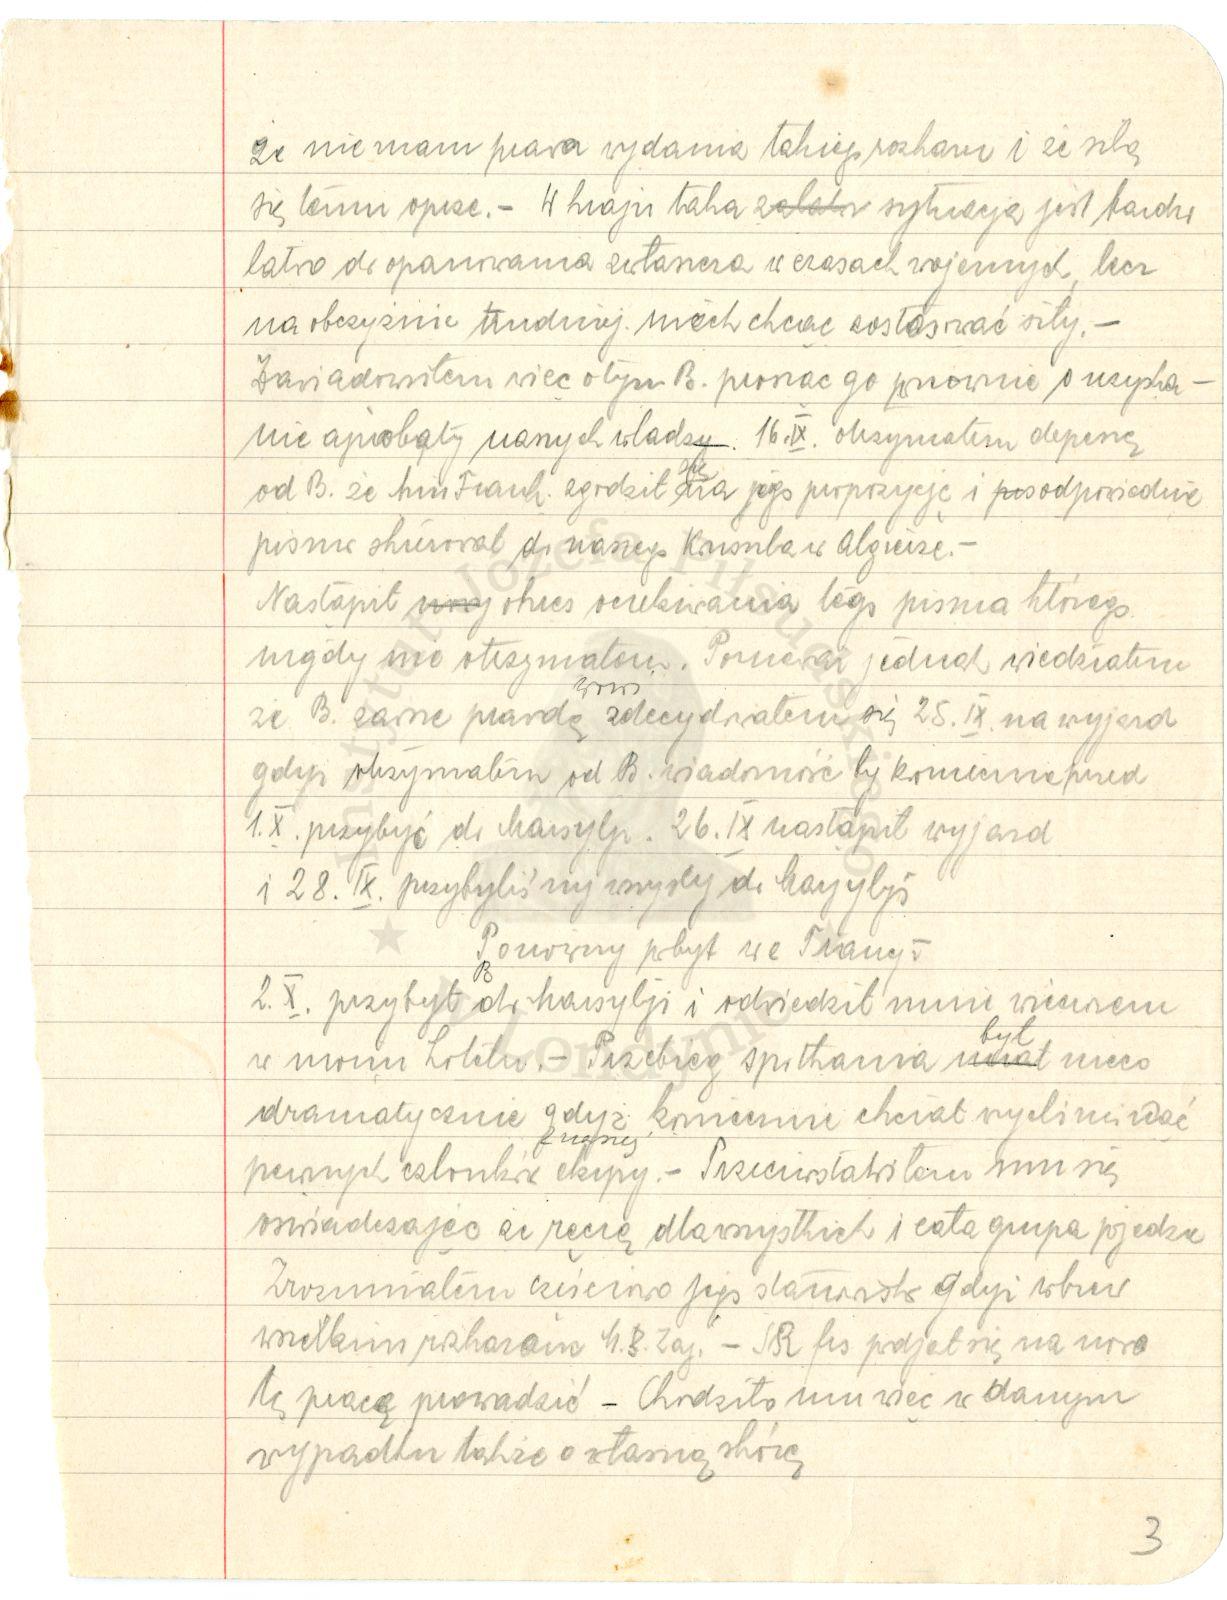 że nie mam prawa wydania takiego rozkazu i że siłą
się temu oprze. – W kraju taka sytuacja jest bardzo
łatwo do opanowania zwłaszcza w czasach wojennych, lecz
na obczyźnie trudniej niech chcąc zastosować siły. –
Zawiadomiłem więc o tym B. prosząc go ponownie o uzyska–
nie aprobaty naszych władz. 16.IX. otrzymałem depeszę
od B. że Franc. zgodził się na jego propozycję i odpowiednie
pismo skierował do naszego Konsula w Algierze. –
Nastąpił okres oczekiwania tego pisma którego
nigdy nie otrzymałem. Ponieważ jednak wiedziałem
że B. zawsze prawdę mówi zdecydowałem się 25.IX. na wyjazd
gdyż otrzymałem od B. wiadomość by koniecznie przed
1.X. przybyć do Marsylji. 26.IX nastąpił wyjazd
i 28.IX. przybyliśmy wszyscy do Marsylji
Ponowny pobyt we Francji
2.X. przybył B do Marsylji i odwiedził mnie wieczorem
w moim hotelu. – Przebieg spotkania był nieco
dramatycznie gdyż koniecznie chciał wyeliminować
pewnych członków znaszej ekipy. – Przeciwstawiłem mu się
oświadczając że ręczę dla wszystkich i cała grupa pojedzie
Zrozumiałem częściowo jego stanowisko gdyż wbrew
wszelkim rozkazom podjął się na nowo
tę pracę prowadzić – Chodziło mu więc w danym
wypadku także o własną skórę
3
Instytut Józefa Piłsudskiego
w Londynie